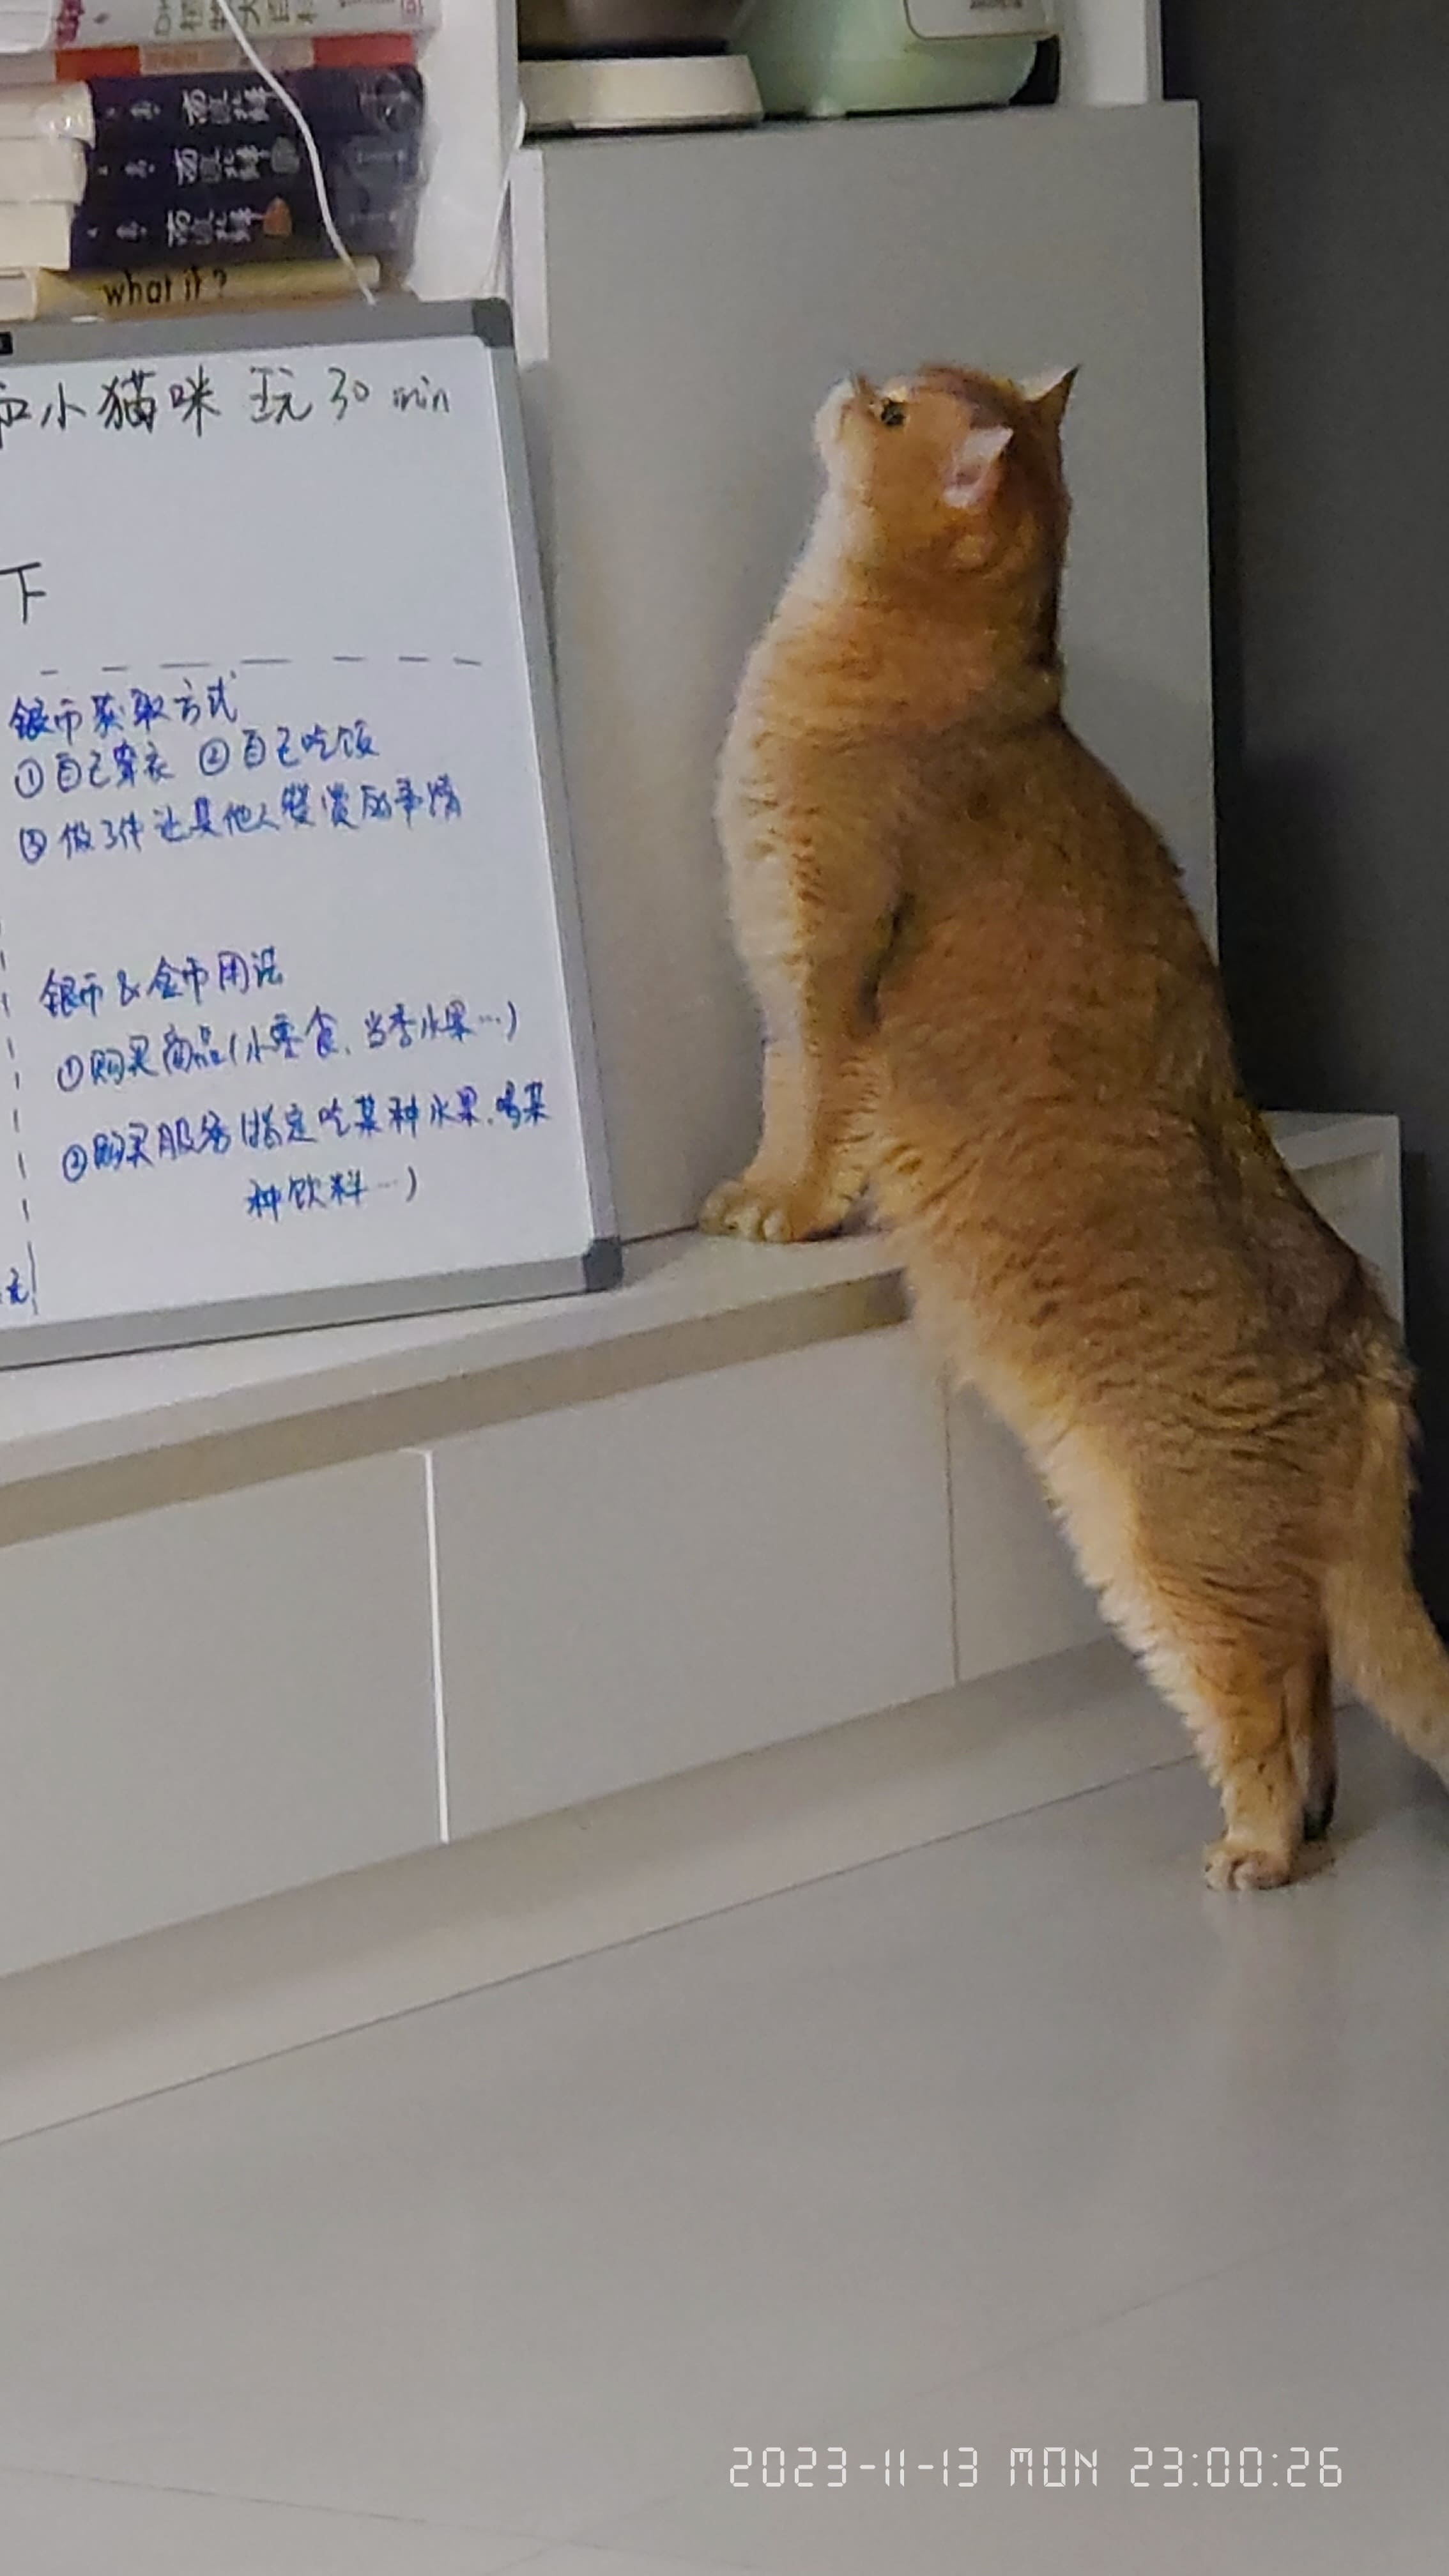 what if?
和小猫咪 玩 30 min
下
银币获取方式
①自己穿衣 ②自己吃饭
③做3件让其他人赞赏的事情
银币&金币用法
①购买商品(小零食、当季水果…)
②购买服务(指定吃某种水果、喝某
种饮料…)
元
2023-11-13 MON 23:00:26